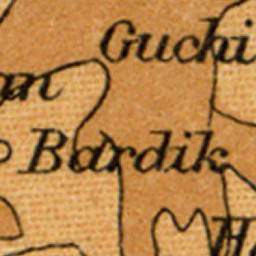 Guchi
an
Bardik